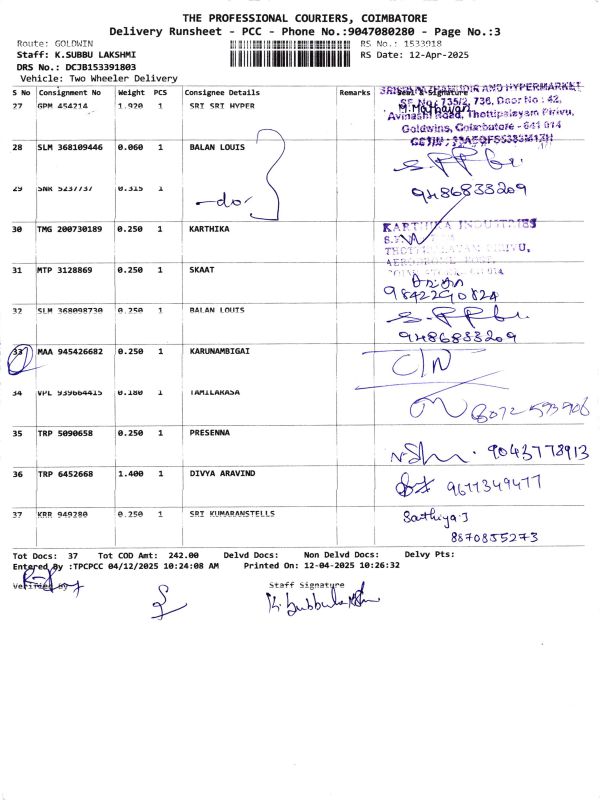 THE PROFESSIONAL COURIERS, COIMBATORE
Delivery Runsheet - PCC - Phone No.:9047080280 - Page No.:3
Route: GOLDWIN RS No.: 1533918
Staff: K.SUBBU LAKSHMI RS Date: 12-Apr-2025
DRS No.: DCJB153391803
Vehicle: Two Wheeler Delivery
S No Consignment No Weight PCS Consignee Details Remarks Seal & Signature
27 GPM 454214 1.920 1 SRI SRI HYPER
AND HYPERMARKET
SF No: 735/2, 736, Door No: 42,
Avinashi Road, Thottipalayam Pirivu,
Goldwins, Coimbatore - 641 014
28 SLM 368109446 0.060 1 BALAN LOUIS
29 SNR 5237737 0.315 1 -do-
9486833209
30 TMG 200730189 0.250 1 KARTHIKA
KARTHIKA INDUSTRIES
31 MTP 3128869 0.250 1 SKAAT
9842290824
32 SLM 368098730 0.250 1 BALAN LOUIS
9486833209
33 MAA 945426682 0.250 1 KARUNAMBIGAI C/N
34 VPL 939664415 0.180 1 TAMILARASA
35 TRP 5090658 0.250 1 PRESENNA 9043778913
36 TRP 6452668 1.400 1 DIVYA ARAVIND 9677349477
37 KRR 949280 0.250 1 SRI KUMARANSTELLS Sathiya.J
8870855273
Tot Docs: 37 Tot COD Amt: 242.00 Delvd Docs: Non Delvd Docs: Delvy Pts:
Entered By :TPCPCC 04/12/2025 10:24:08 AM Printed On: 12-04-2025 10:26:32
Verified By Staff Signature